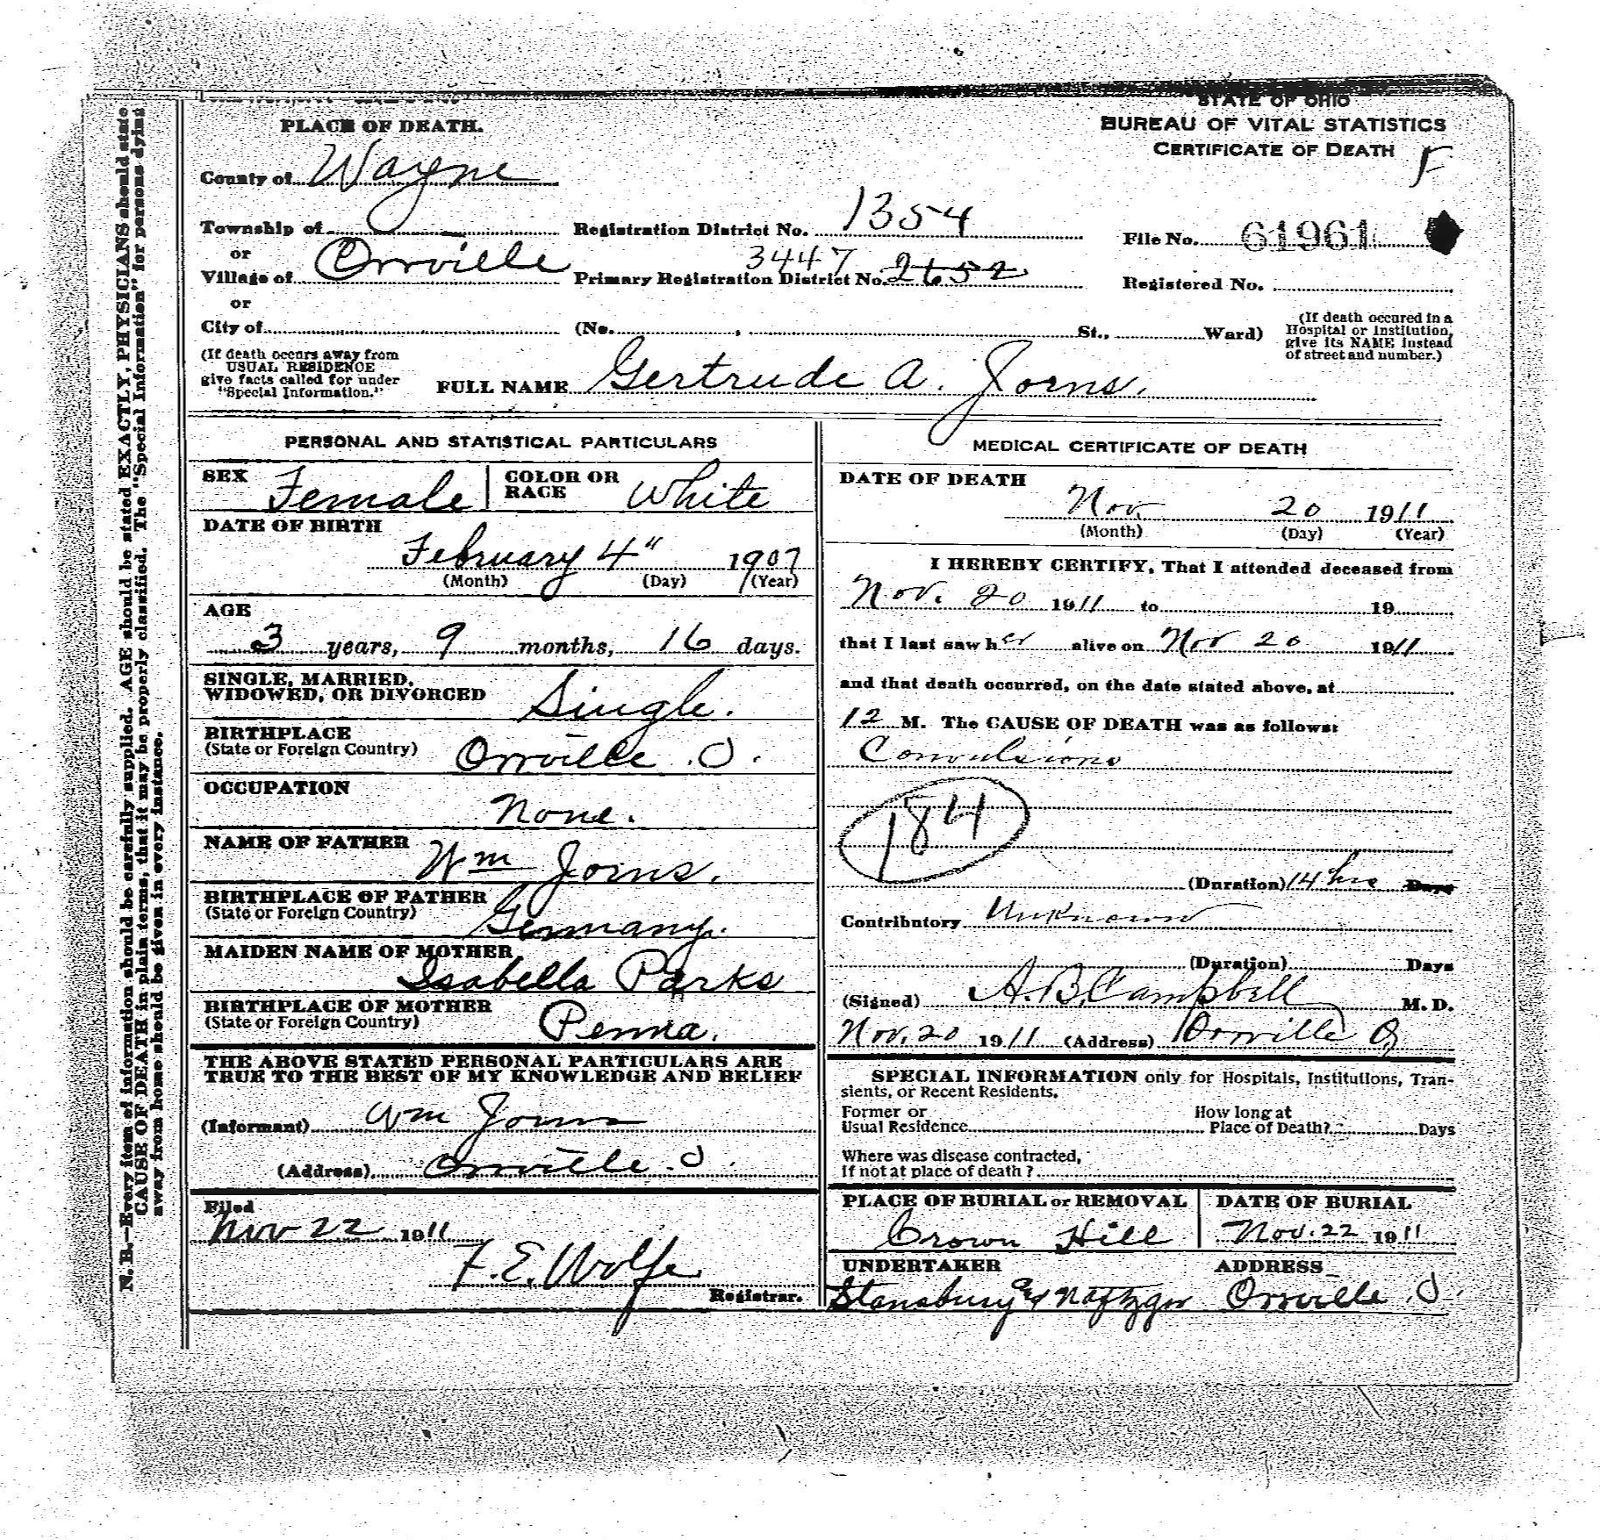 STATE OF OHIO
BUREAU OF VITAL STATISTICS
CERTIFICATE OF DEATH
F
PLACE OF DEATH.
County of Wayne
Township of
Registration District No. 1354
File No. 61961
or
Village of Orrville
3447
Primary Registration District No. 2652
Registered No.
or
City of (No. , St., Ward)
(If death occured in a
Hospital or Institution,
give its NAME instead
of street and number.)
(If death occurs away from
USUAL RESIDENCE
give facts called for under
"Special Information.")
FULL NAME Gertrude A. Jorns.
PERSONAL AND STATISTICAL PARTICULARS
SEX Female
COLOR OR
RACE White
DATE OF BIRTH
February 4" 1907
(Month) (Day) (Year)
AGE
3 years, 9 months, 16 days.
SINGLE, MARRIED,
WIDOWED, OR DIVORCED Single.
BIRTHPLACE
(State or Foreign Country) Orrville .O.
OCCUPATION
None.
NAME OF FATHER Wm Jorns.
BIRTHPLACE OF FATHER
(State or Foreign Country) Germany.
MAIDEN NAME OF MOTHER
Isabella Parks
BIRTHPLACE OF MOTHER
(State or Foreign Country) Penna.
THE ABOVE STATED PERSONAL PARTICULARS ARE
TRUE TO THE BEST OF MY KNOWLEDGE AND BELIEF
(Informant) Wm Jorns
(Address) Orrville .O.
Filed
Nov 22 1911
F. E. Wolfe
Registrar.
MEDICAL CERTIFICATE OF DEATH
DATE OF DEATH
Nov. 20 1911
(Month) (Day) (Year)
I HEREBY CERTIFY, That I attended deceased from
Nov. 20 1911 to 19
that I last saw her alive on Nov 20 1911
and that death occurred, on the date stated above, at
12 M. The CAUSE OF DEATH was as follows:
Convulsions
184
(Duration) 14 hrs Days
Contributory Unknown
(Duration) Days
(Signed) A. B. Campbell M. D.
Nov. 20 1911 (Address) Orrville O
SPECIAL INFORMATION only for Hospitals, Institutions, Tran-
sients, or Recent Residents.
Former or
Usual Residence
How long at
Place of Death? Days
Where was disease contracted,
If not at place of death ?
PLACE OF BURIAL or REMOVAL
Crown Hill
DATE OF BURIAL
Nov. 22 1911
UNDERTAKER
Stansbury and Naftzger
ADDRESS
Orrville .O.
N. B.—Every item of information should be carefully supplied. AGE should be stated EXACTLY, PHYSICIANS should state
CAUSE OF DEATH in plain terms, that it may be properly classified. The "Special Information" for persons dying
away from home should be given in every instance.